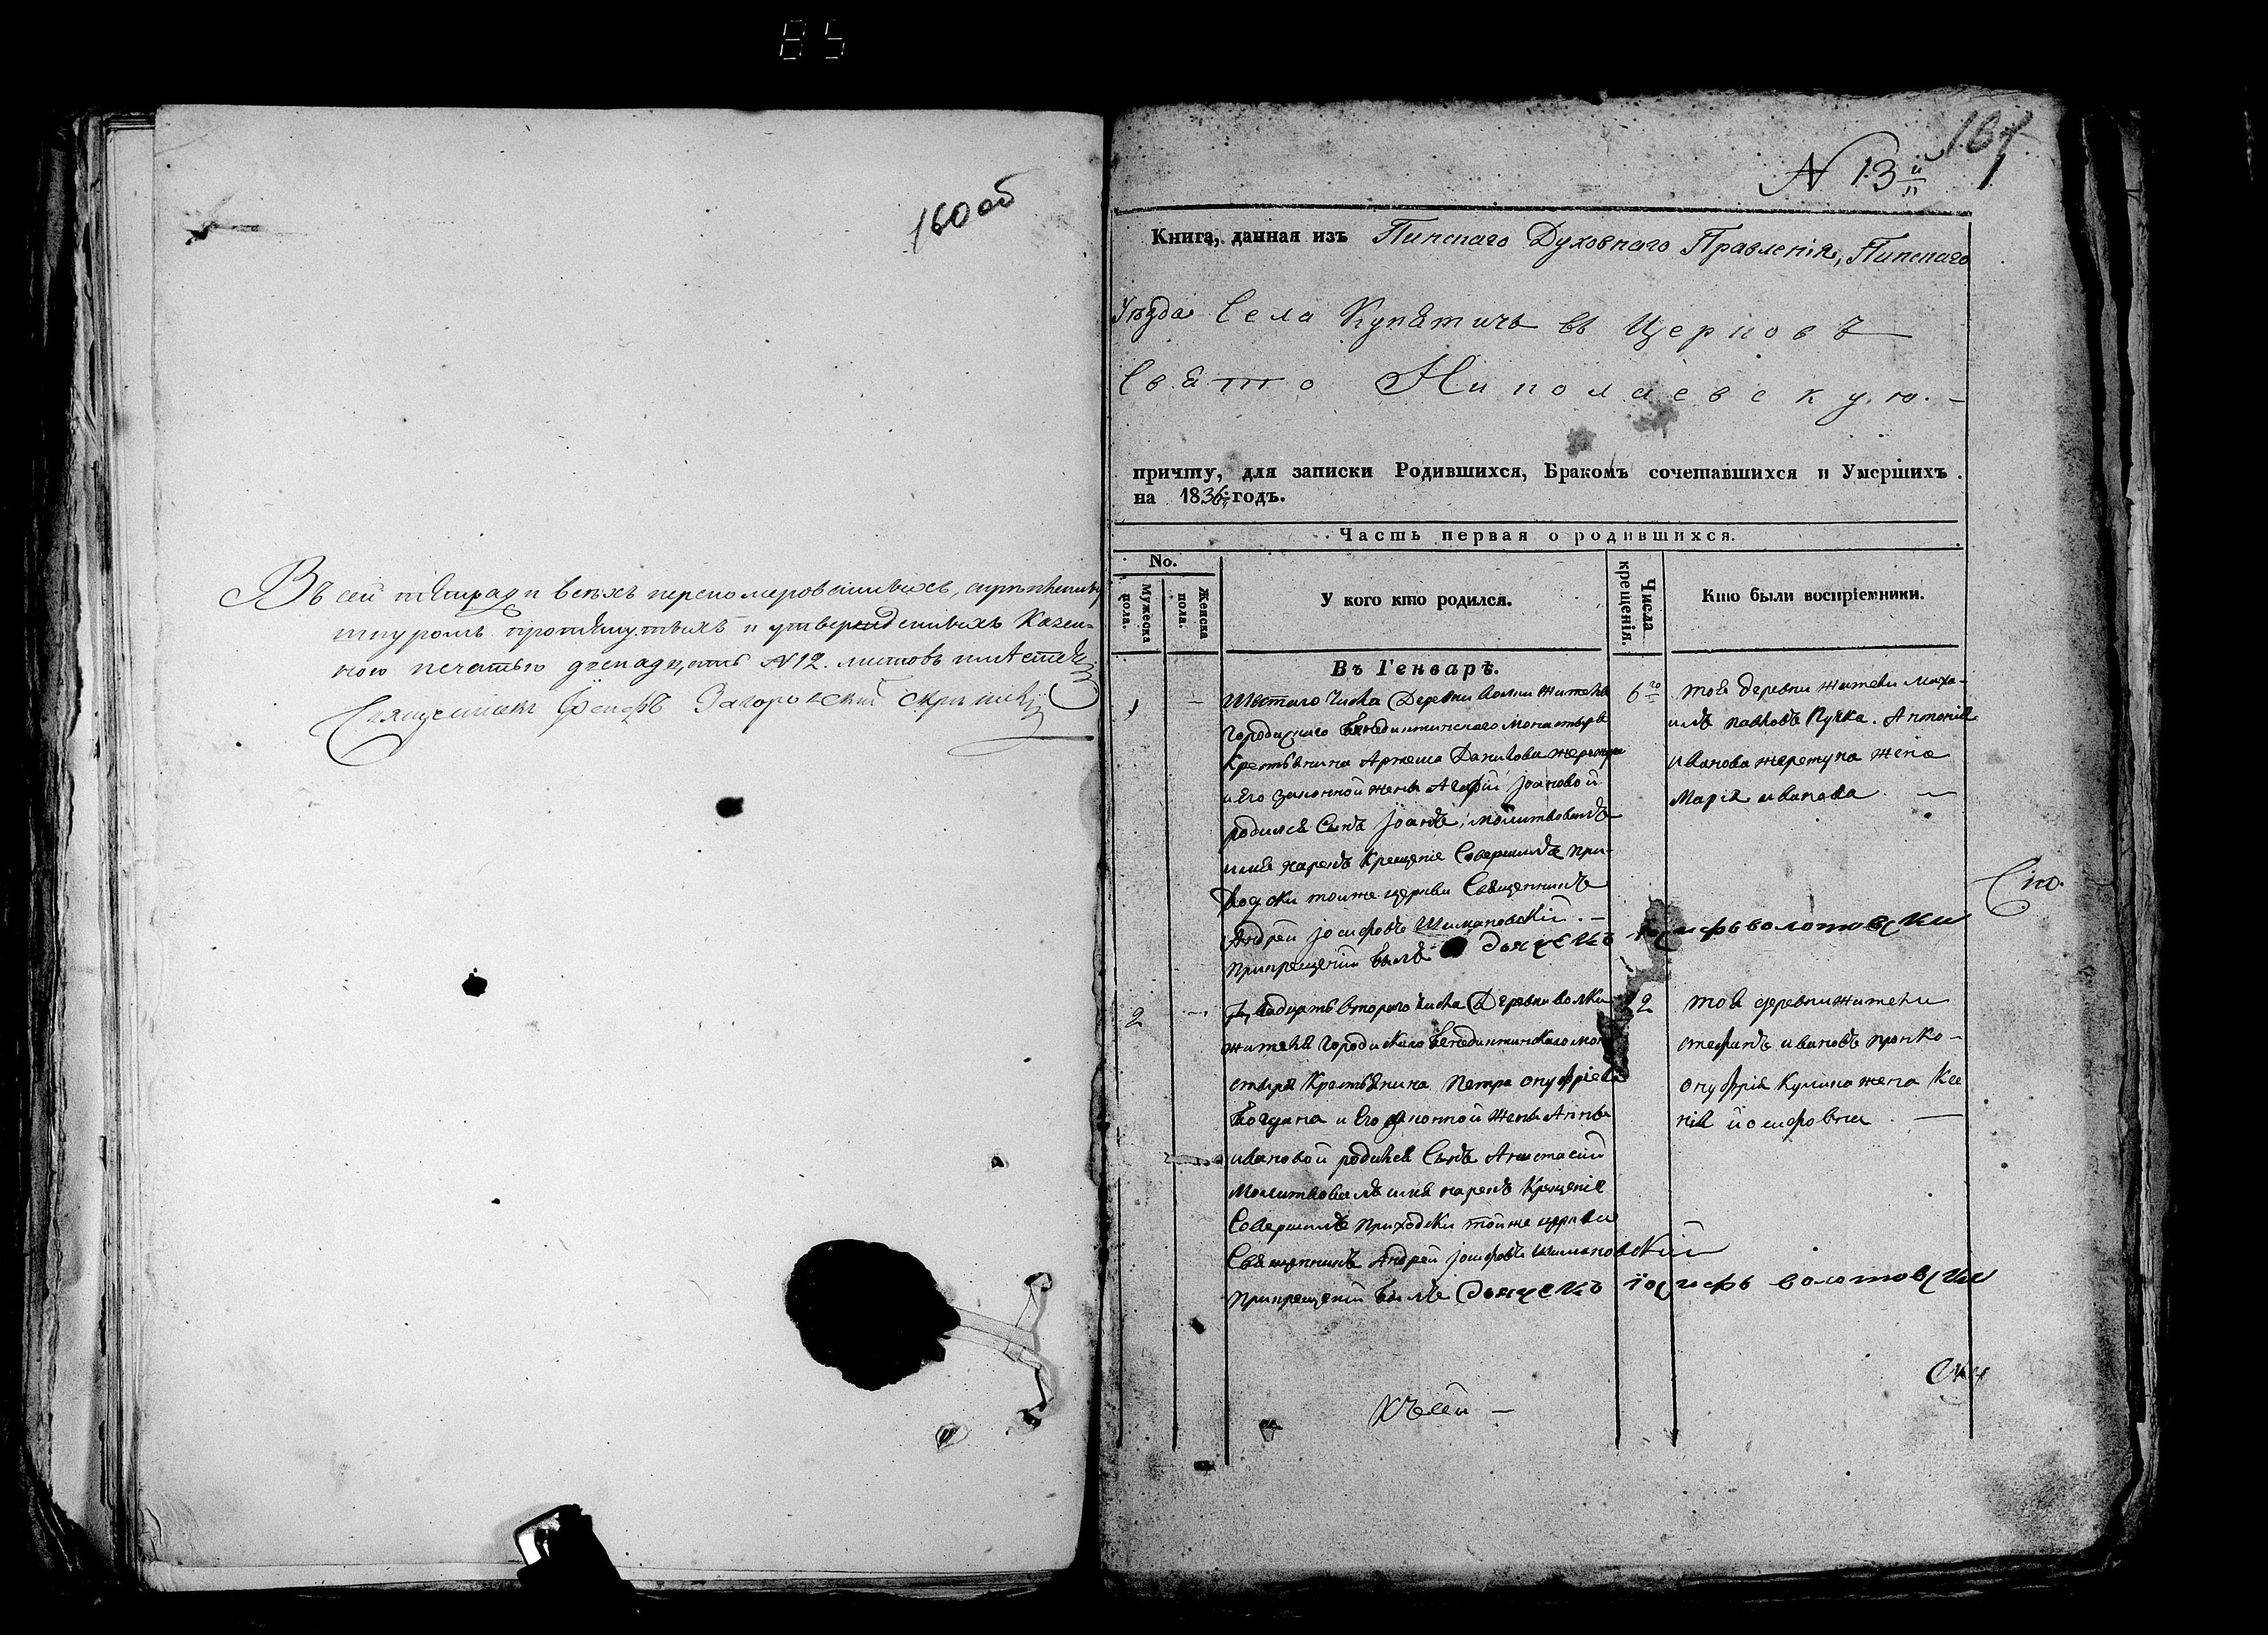 85
160 об
Въ сей тѣтради всѣхъ перенумерованныхъ, скрѣпленныхъ
шнуромъ протянутыхъ и утвержденныхъ Казен-
ною печатью двенадцать №12. листовъ имѣетця
Священникъ Загоровскій
161
N 13й
Книга, данная изъ Пинскаго Духовнаго Правленія, Пинскаго
Уѣзда Села Купятичь въ Церковь
Свято Николаевскую. –
причту, для записки Родившихся, Бракомъ сочетавшихся и Умершихъ
на 1836й годъ.
Часть первая о родившихся.
No.
Мужеска пола.
Женска пола.
У кого кто родился.
Числа крещенія.
Кто были воспріемники.
Въ Генварѣ.
1
Шестаго Числа Деревни Волки жителя
Городискаго Бенединтинскаго Монастыря
Крестянина Артема Данилова
и Его законной жены Агафіи Іоановой
родился Сынъ Іоанъ, молитвовалъ
имя нарекъ Крещеніе Совершилъ При-
ходски тойже церкви Священникъ
Андрей Іосифовъ Шимановскій. –
Прикрещеніи былъ дьячекъ Іосифъ волотовски
6го
тоя деревни жители Миха-
илъ павловъ Пучка. Антонія
Иванова жерутка жена
Марія иванова. –
2
Двадцать втораго числа Деревни Волки
жителя Городискаго Бенединтинскаго мона
стыря Крестянина Петра Онуфріева
Богдана и Его законной Жены Анны
ивановой родился Сынъ Анастасий
Молитвовалъ имя нарекъ Крещеніе
Совершилъ Приходски тойже церкви
Священникъ Андрей Іосифовъ Шимановскій
Прикрещеніи былъ дьячекъ іосифъ волотовски
22
тоя деревни жители
стефанъ ивановъ пронко –
Онуфрія Кулина жена Ксе
нія йосифовна. –
Къ сей –